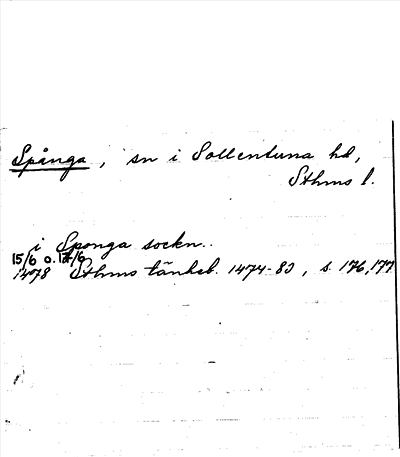 Spånga, sn i Sollentuna hd,
Sthms l.
i Sponga sockn..
15/6 o. 17/6
1478 Sthms tänkeb. 1474-83, s. 176, 177